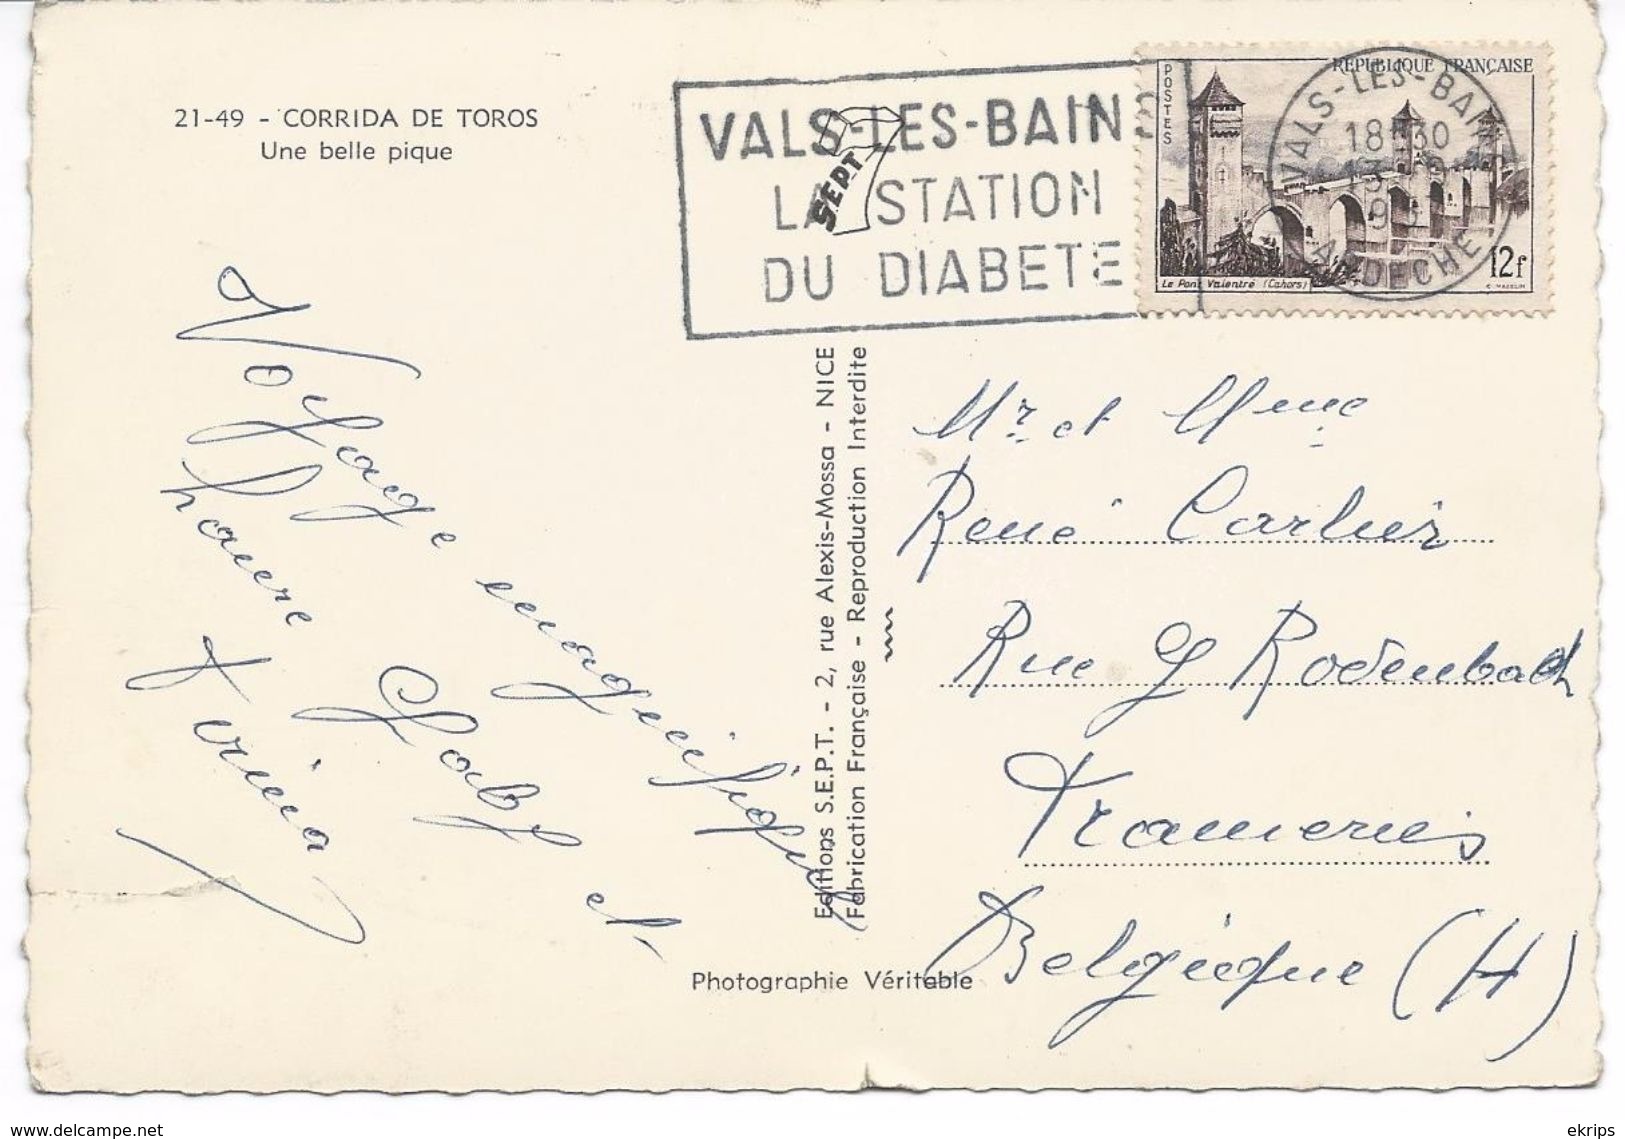 21-49 - CORRIDA DE TOROS
Une belle pique
VALS-LES-BAINS
LA STATION
DU DIABETE
SEPT
POSTES
REPUBLIQUE FRANÇAISE
Le Pont Valentré (Cahors)
12f
VALS-LES-BAINS
18H30
ARDECHE
Voyage magnifique
Laure Gaby et
Iréna
Editions S.E.P.T. - 2, rue Alexis-Mossa - NICE
Fabrication Française - Reproduction Interdite
Photographie Véritable
Mr et Mme
René Carlier
Rue G Rodenbach
Frameries
Belgique (H)
www.delcampe.net
ekrips